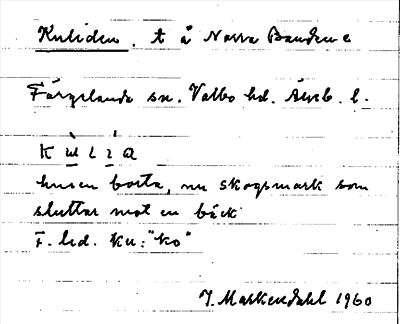 Kuliden. t å Norra Bänden e
Färgelanda sn. Valbo hd. Älvsb. l.
K ù L í a
husen borta, nu skogsmark som
sluttar mot en bäck
F. led. ku: "ko"
J. Markendahl 1960